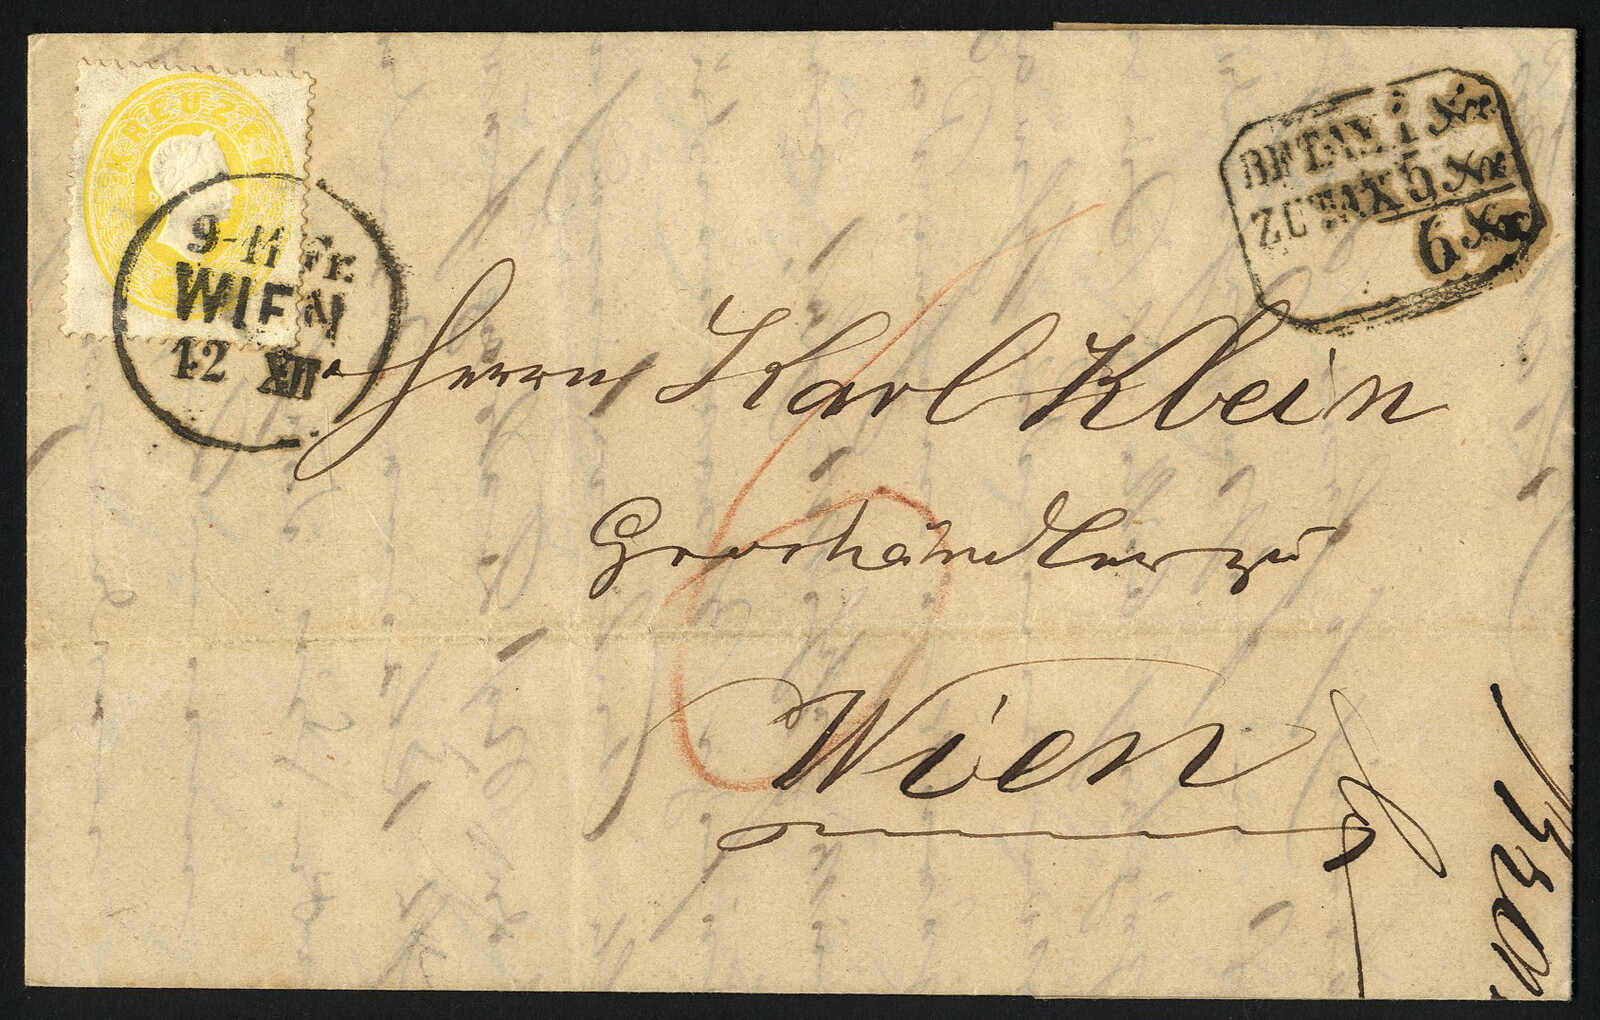 KREUZER
9-11 Fr.
WIEN
12 XII
BFTAX 1 Nkr
ZUTAX 5 Nkr
6 Nkr
Herrn Karl Klein
Grosshändler zu
Wien
6